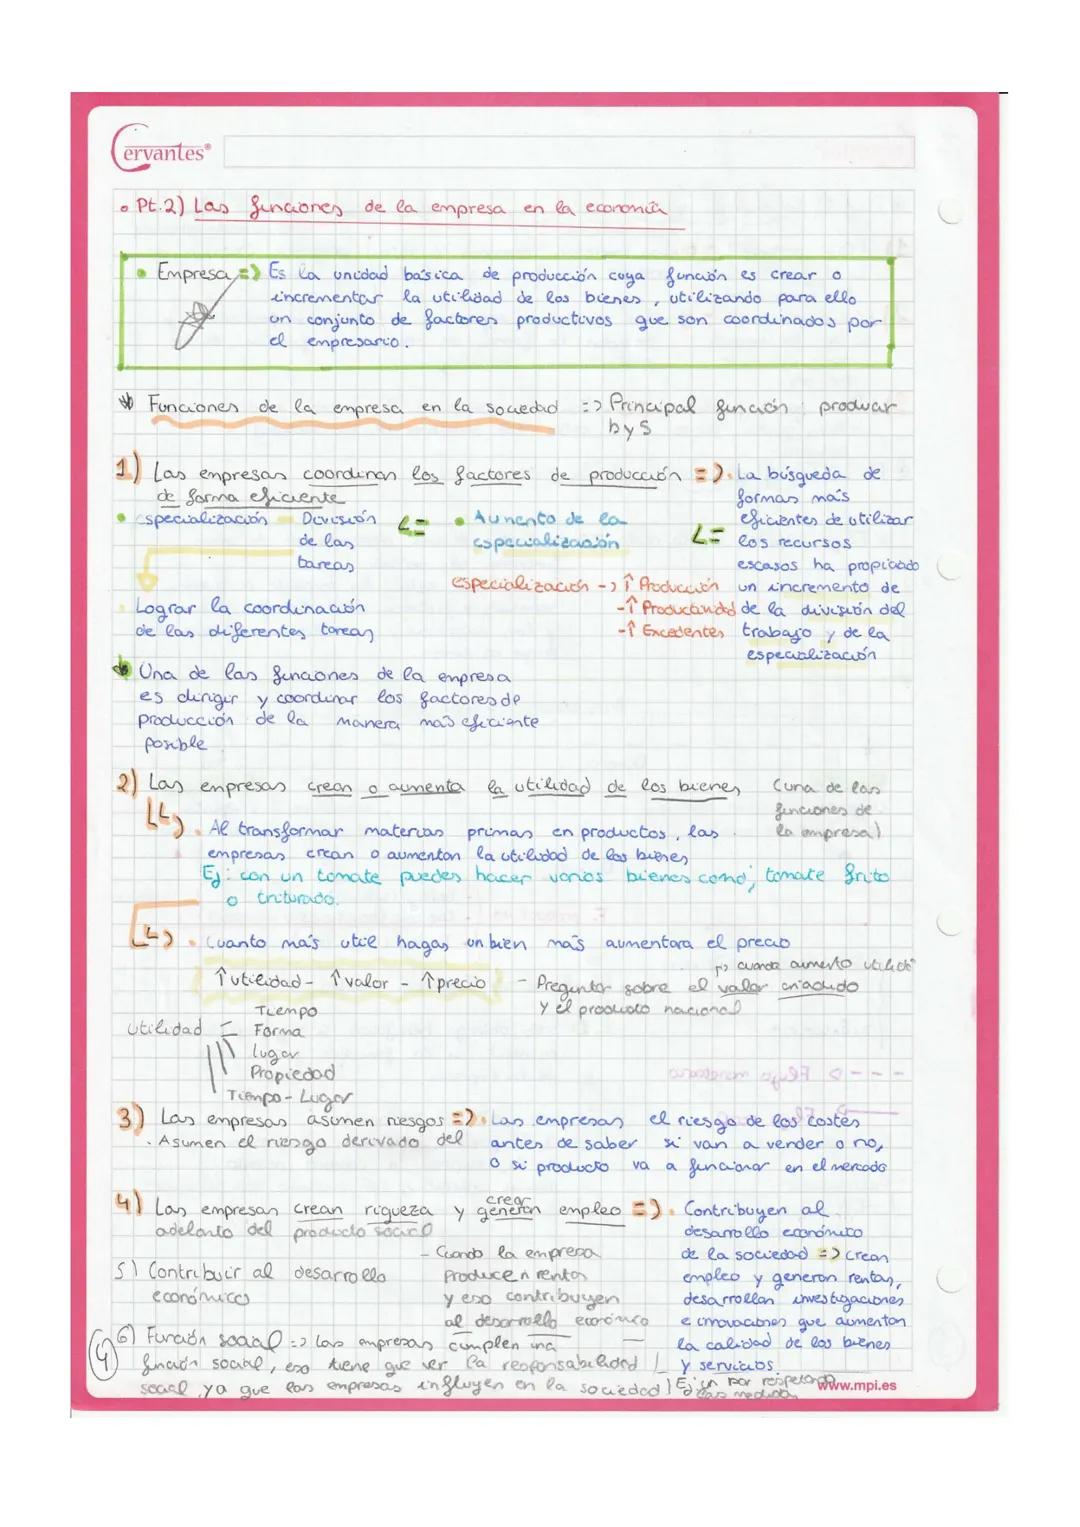 Cervantes®
• Pt.2) Las funciones de la empresa en la economía
• Empresa => Es la unidad básica de producción cuya función es crear o
incrementar la utilidad de los bienes, utilizando para ello
un conjunto de factores productivos que son coordinados por
el empresario.
* Funciones de la empresa en la sociedad => Principal función: producir
b y S
1) Las empresas coordinan los factores de producción =>
de forma eficiente
• La búsqueda de
formas más
eficientes de utilizar
los recursos
escasos ha propiciado
un incremento de
de la división del
trabajo y de la
especialización
<= • Aumento de la
especialización
especialización -> ↑ Producción
-↑ Productividad
-↑ Excedentes
<=
• especialización = División
de las
tareas
Lograr la coordinación
de las diferentes tareas
* Una de las funciones de la empresa
es dirigir y coordinar los factores de
producción de la manera más eficiente
posible
2) Las empresas crean o aumenta la utilidad de los bienes (una de las
funciones de
la empresa)
• Al transformar materias primas en productos, las
empresas crean o aumentan la utilidad de los bienes
Ej: con un tomate puedes hacer varios bienes como; tomate frito
o triturado.
• Cuanto más util hagas un bien más aumentara el precio
↑utilidad - ↑valor - ↑precio
- Preguntar sobre el valor añadido
y el producto nacional
Utilidad =
Tiempo
Forma
Lugar
Propiedad
Tiempo - Lugar
3) Las empresas asumen riesgos =>
· Asumen el riesgo derivado del
• Las empresas el riesgo de los costes
antes de saber si van a vender o no,
o si producto va a funcionar en el mercado
4) Las empresas crean riqueza y generan empleo =>
crear
adelanto del producto social
• Contribuyen al
desarrollo económico
de la sociedad => Crean
empleo y generan rentas,
desarrollan investigaciones
e innovaciones que aumentan
la calidad de los bienes
y servicios
5) Contribuir al desarrollo
económico
- Cuando la empresa
producen rentas
y eso contribuyen
al desarrollo económico
6) Función social => las empresas cumplen una
función social, eso tiene que ver la responsabilidad
social, ya que las empresas influyen en la sociedad
4
www.mpi.es